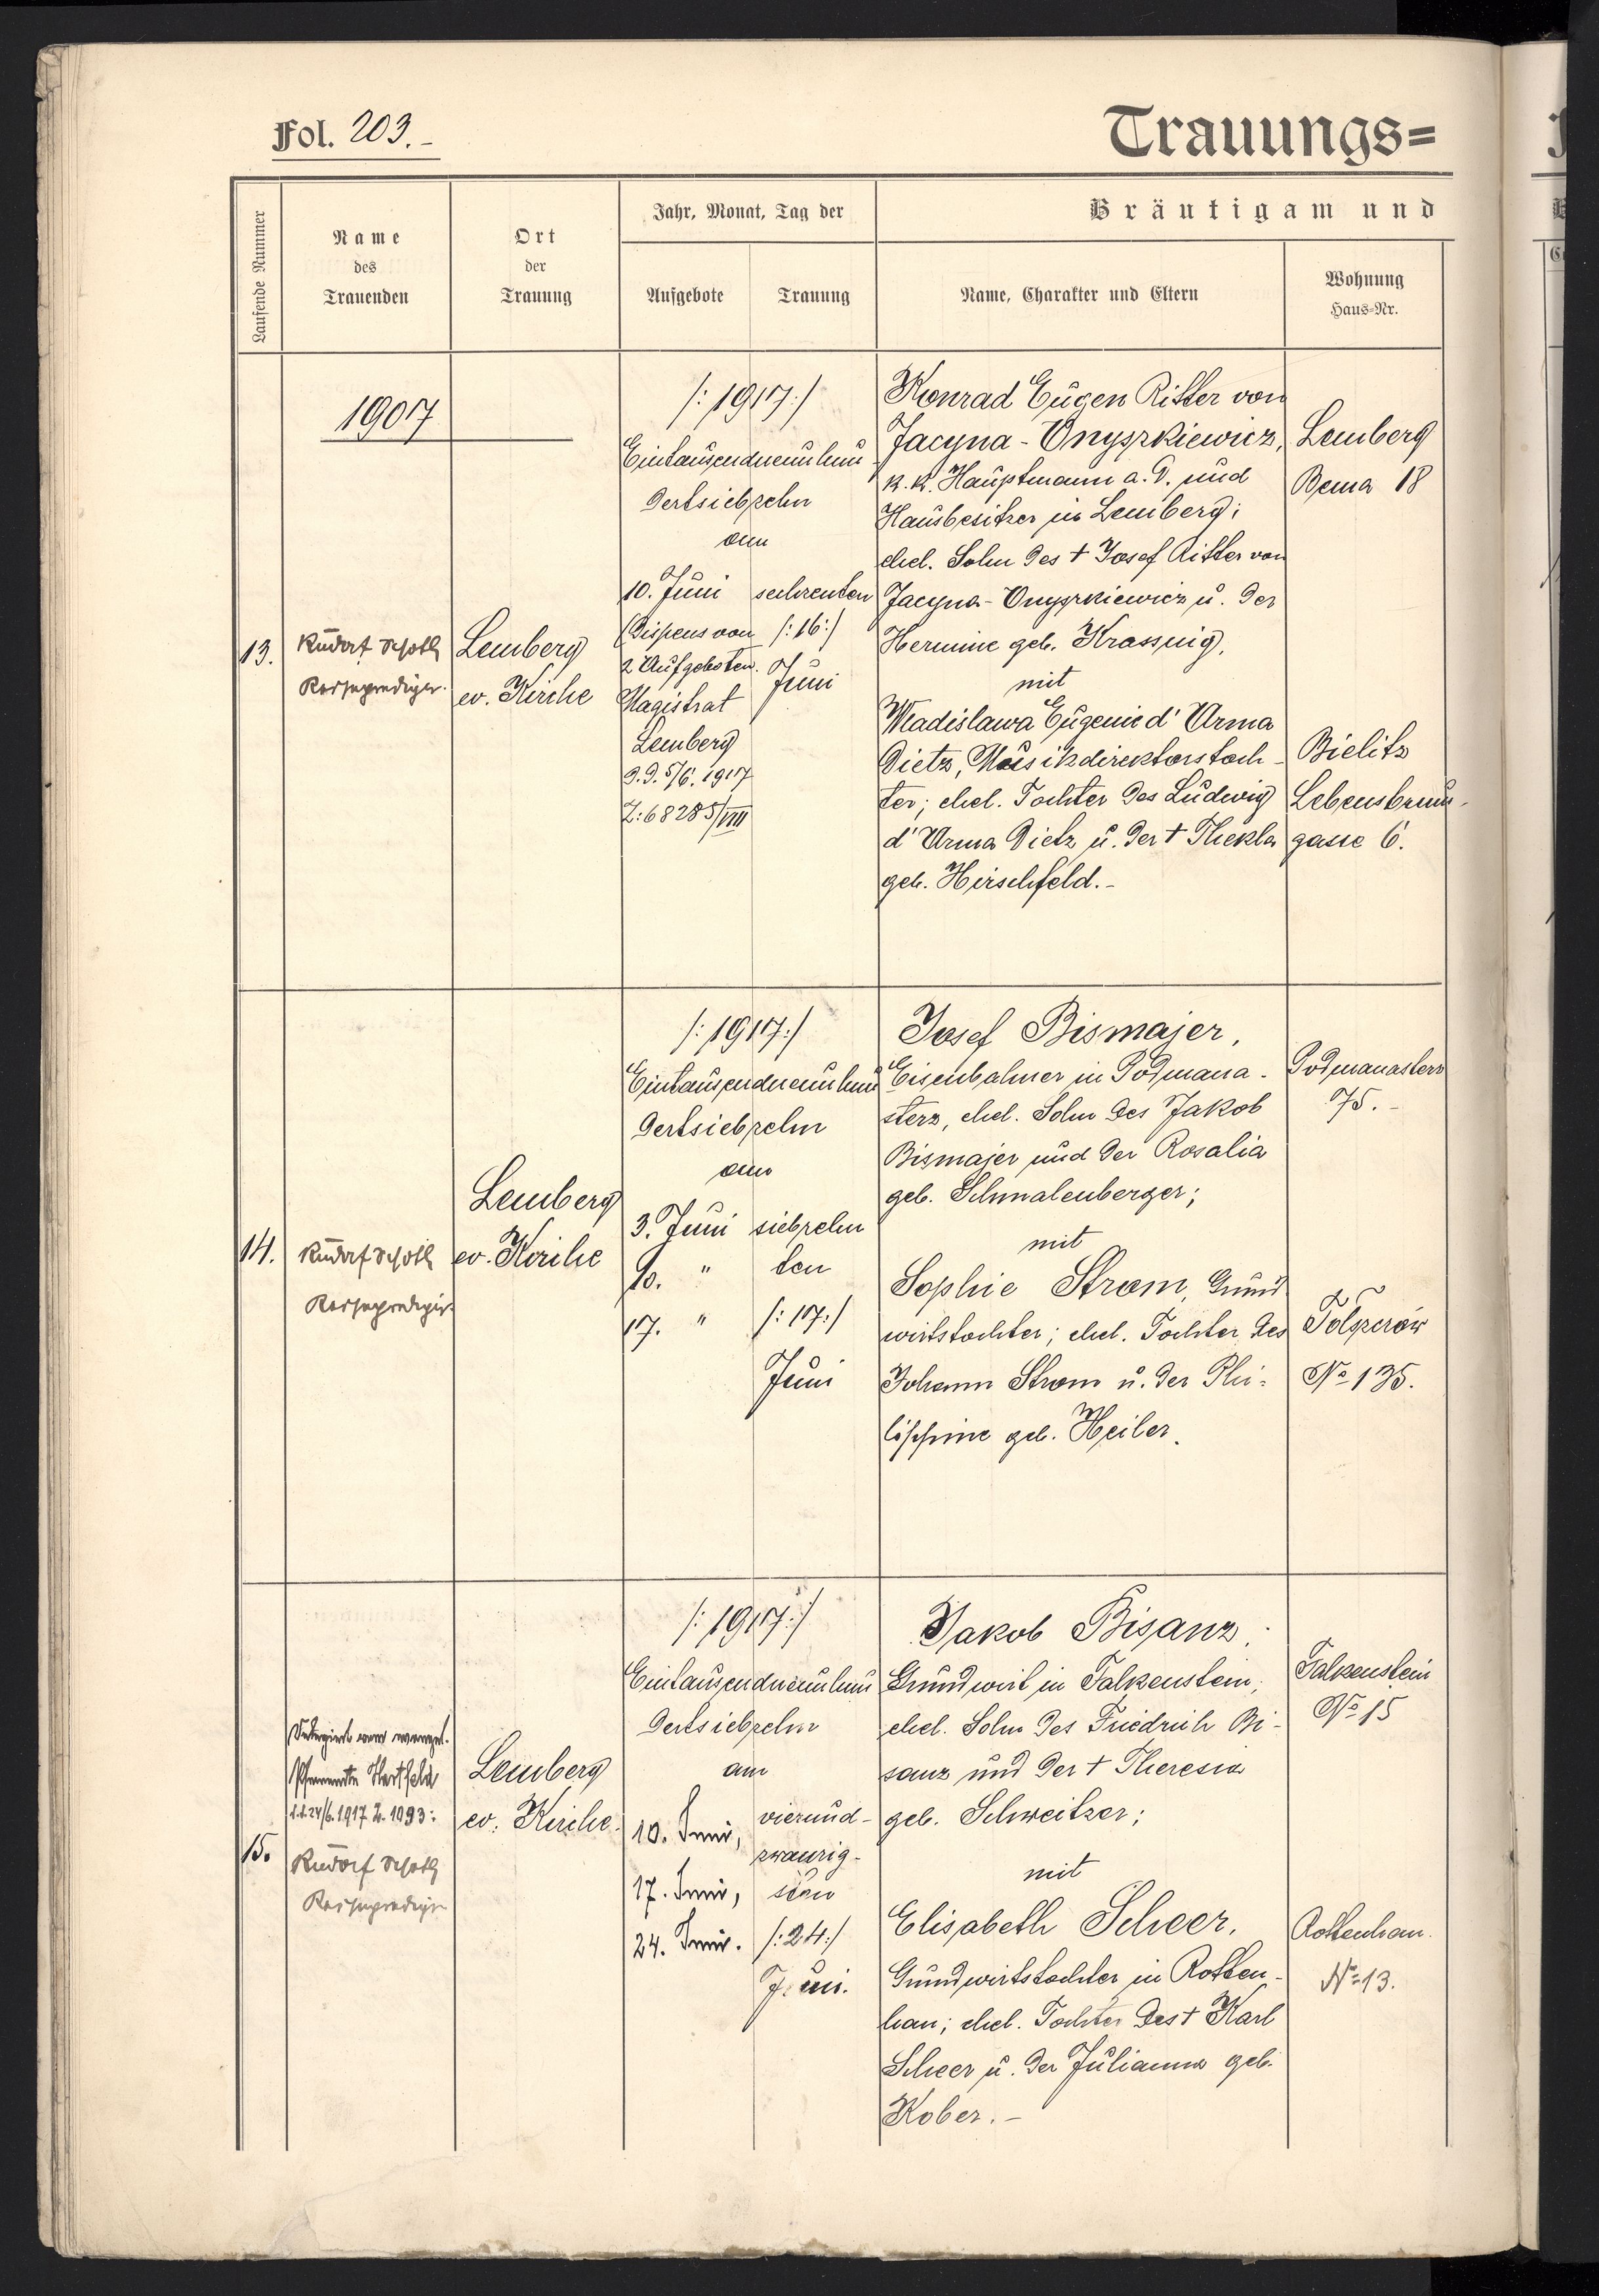 Fol. 203.-
Trauungs=
Laufende Nummer
Name
des
Trauenden
Ort
der
Trauung
Jahr, Monat, Tag der
Aufgebote
Trauung
Bräutigam und
Name, Charakter und Eltern
Wohnung
Haus=Nr.
1907
13.
Rudolf
Lemberg
ev. Kirche
/: 1917 :/
Eintausendneunhun
dertsiebzehn
am
10. Juni
(Dispens von
2 Aufgeboten.
Magistrat
Lemberg
d.d. 5/6. 1917
Z: 68285/VIII
sechzenten
/: 16 :/
Juni
Konrad Eugen Ritter von
Jacyna-Onyszkiewicz,
k. k. Hauptmann a. D. und
Hausbesitzer in Lemberg;
ehel. Sohn des † Josef Ritter von
Jacyna-Onyszkiewicz u. der
Hermine geb. Krassnig,
mit
Wladislawa Eugenie d'Arma
Dietz, Musikdirektorstoch-
ter; ehel. Tochter des Ludwig
d'Arma Dietz u. der † Thekla
geb. Hirschfeld.-
Lemberg
Bema 18
Bielitz
Lebensbrunn-
gasse 6.
14.
Rudolf
Lemberg
ev. Kirche
/: 1917 :/
Eintausendneunhun
dertsiebzehn
am
3. Juni
10. "
17. "
siebzehn
ten
/: 17 :/
Juni
Josef Bismajer,
Eisenbahner in Podmana-
sterz, ehel. Sohn des Jakob
Bismajer und der Rosalia
geb. Schmalenberger;
mit
Sophie Strom, Grund
wirtstochter; ehel. Tochter des
Johann Strom u. der Phi-
lippine geb. Heiler.
Podmanasterz
75.-
Tolszczów
No 135.
15.
Hartfeld
d.d. 24/6. 1917 Z. 1093:
Rudolf
Lemberg
ev. Kirche.
/: 1917 :/
Eintausendneunhun
dertsiebzehn
am
10. Juni,
17. Juni,
24. Juni.
vierund-
zwanzig-
sten
/: 24 :/
Juni.
Jakob Bisanz,
Grundwirt in Falkenstein;
ehel. Sohn des Friedrich Bi-
sanz und der † Theresia
geb. Schweitzer;
mit
Elisabeth Scheer,
Grundwirtstochter in Rotten-
han; ehel. Tochter des † Karl
Scheer u. der Julianna geb.
Kober.-
Falkenstein
No 15
Rottenhan.
No 13.